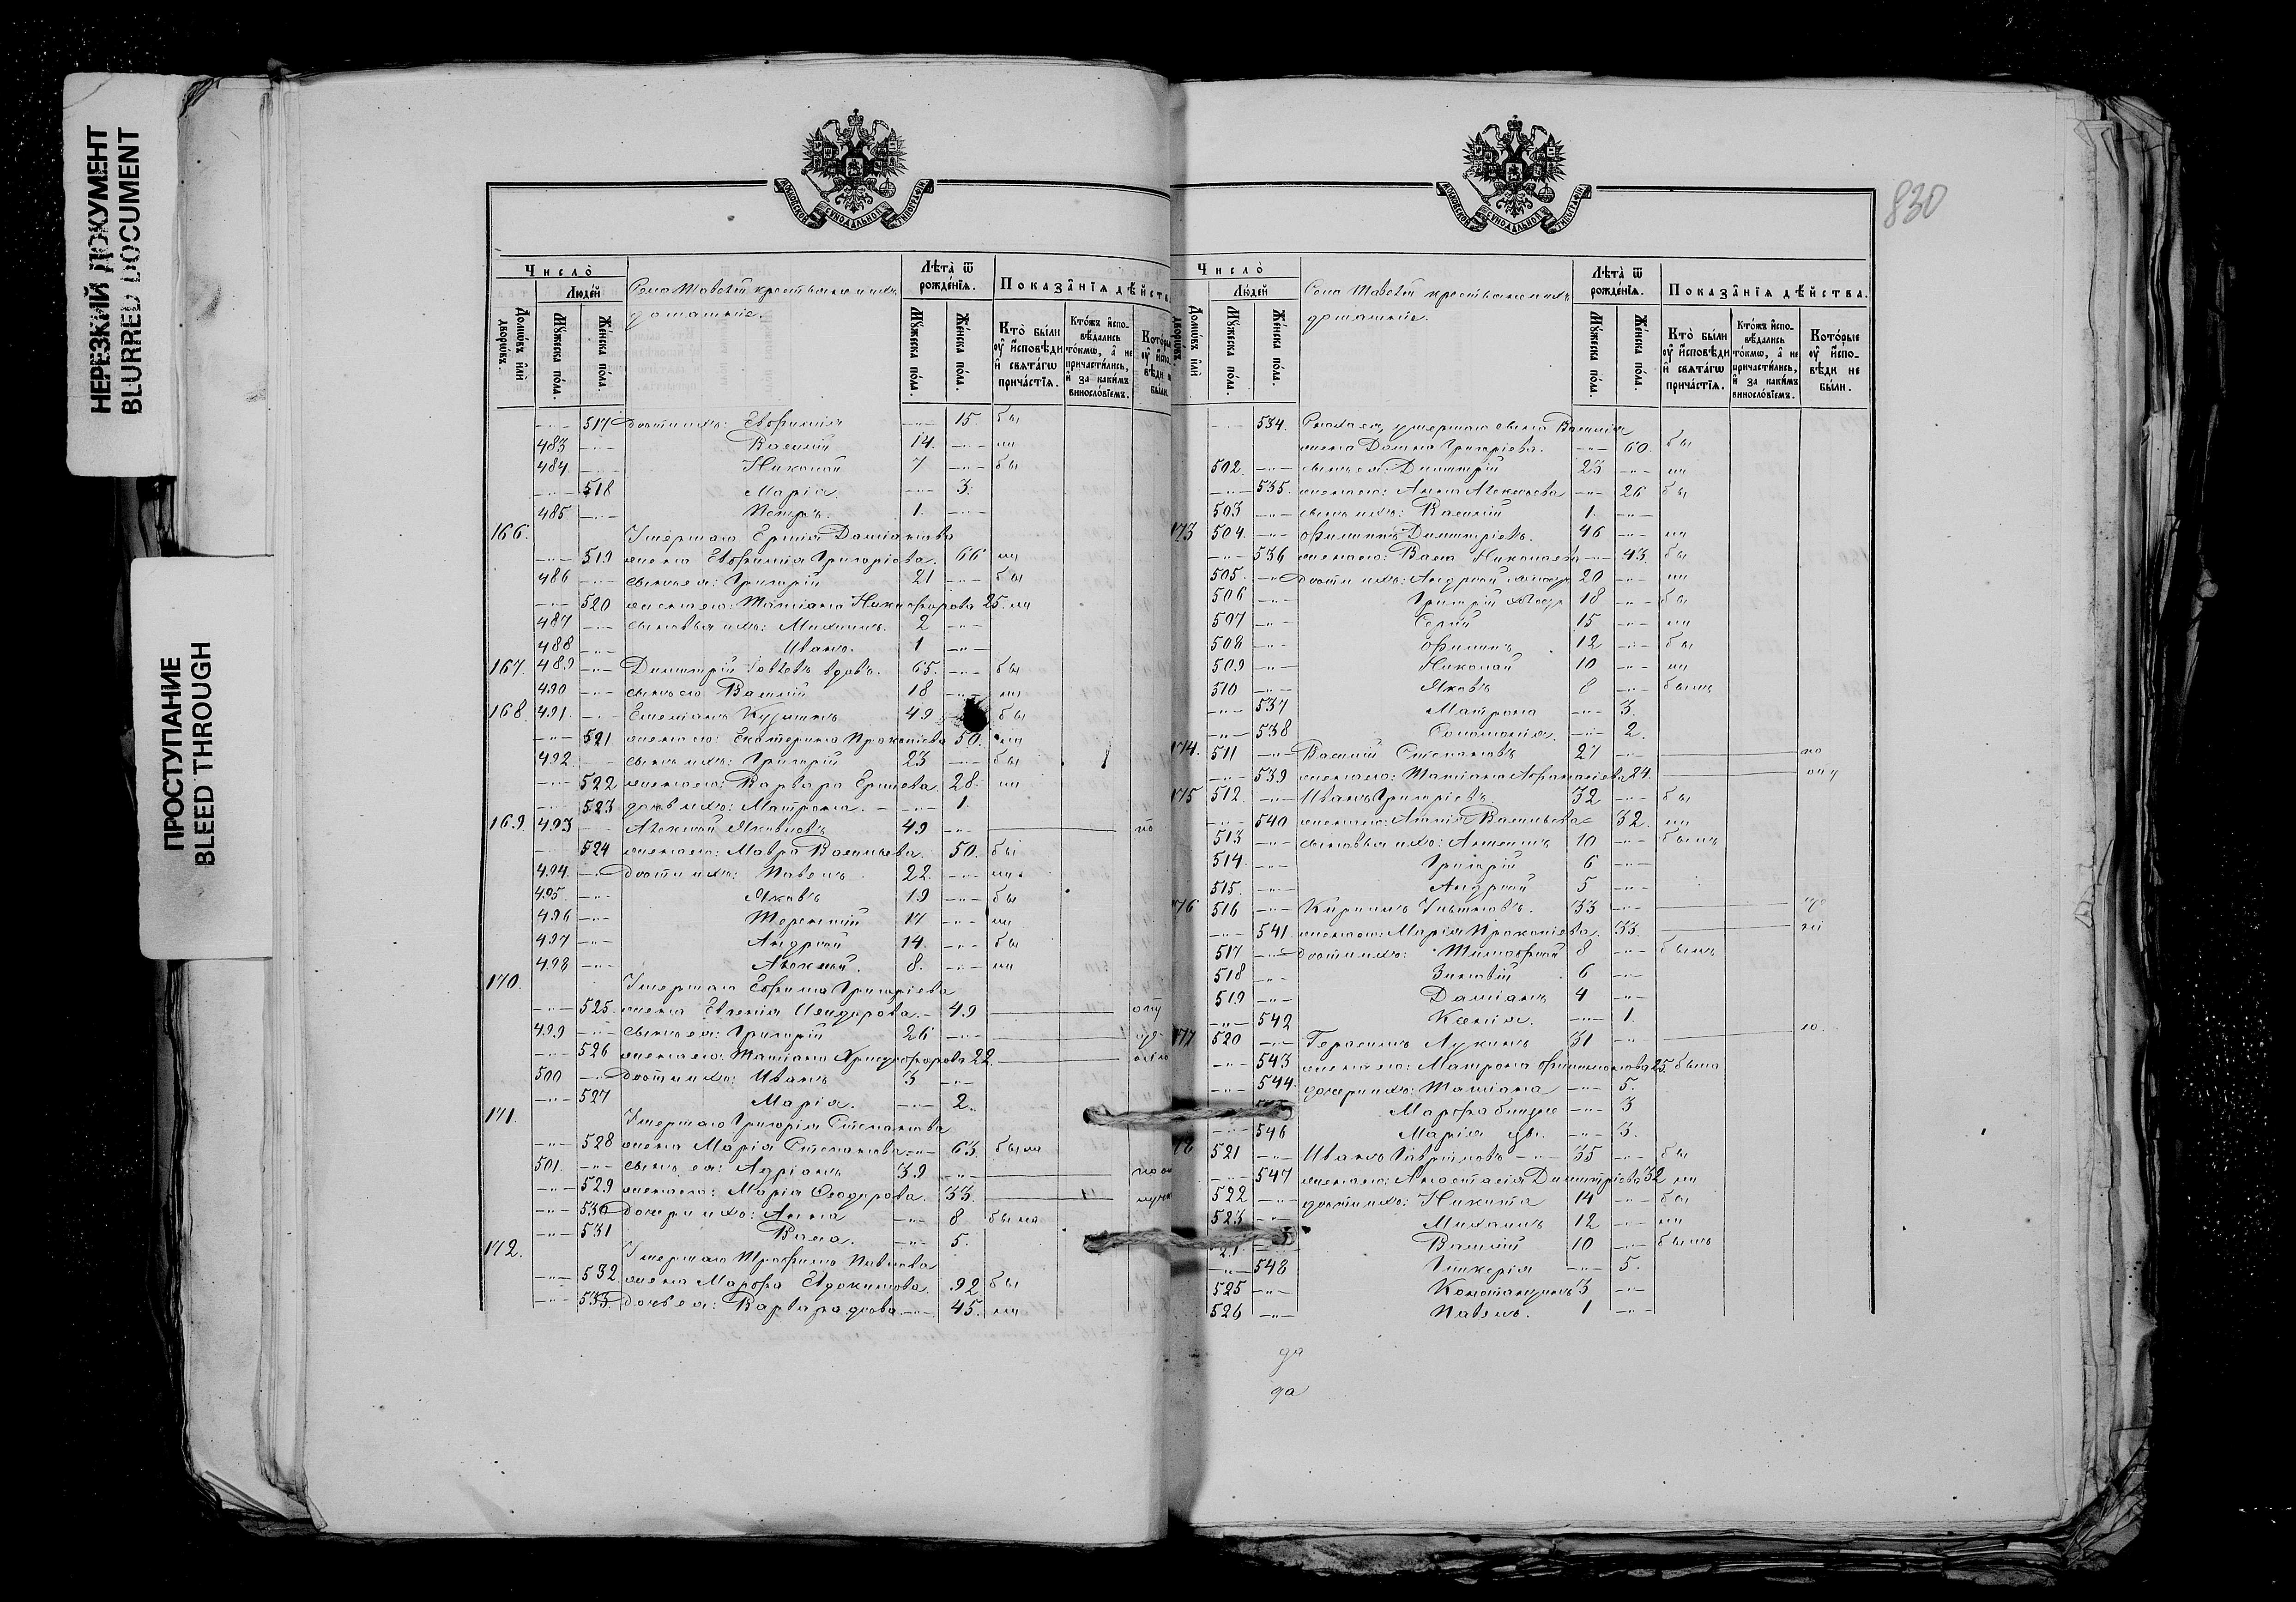 НЕРЕЗКИЙ ДОКУМЕНТ
BLURRED DOCUMENT
ПРОСТУПАНИЕ
BLEED THROUGH
МОСКОВСКОЙ СѴНОДАЛЬНОЙ ТИПОГРАФІИ
Число̀
Людей
Домѡвъ и҆лѝ дворѡвъ.
Мꙋжеска по́ла.
Же́нска по́ла.
крестьяне и ихъ
домашніе.
Лѣта̀ ѿ рожде́нїѧ.
Мꙋжеска по́ла.
Же́нска по́ла.
Показа̑нїѧ дѣ́йств
Кто̀ бы́ли ᲂу҆ и҆сповѣди и҆ свѧта́гѡ прича́стїѧ.
Кто́жъ и҆спо-вѣдались то́кмѡ, а҆ не причасти́лись, и҆ за каки́мъ винословїемъ.
517 дѣти ихъ: Евфимія -„- 15. бы
483 -„- Василій 14. -„- ли
484 -„- Николай 7 -„- бы
-„- 518 Марія. -„- 3.
485 -„- Петръ. 1. -„-
166. Умершаго Даміанова
-„- 519 жена Евфимія Григоріева. 66 ли
486 -„- сынъ ея: Григорій 21 -„- бы
-„- 520 жена его: Татіана Никифорова 25. ли
487 -„- сыновья ихъ: Михаилъ. 2 -„-
488 -„- Иванъ. 1 -„-
167. 489 -„- Димитрій вдовъ. 65. -„- бы
490 -„- сынъ его Василій 18 -„- ли
168. 491. -„- Емеліанъ Кузминъ 49 бы
-„- 521 жена его: Екатерина Прокопіева 50. ли
492 сынъ ихъ: Григорій 23 -„- бы
-„- 522 жена его: Варвара 28. ли
-„- 523 дочь ихъ: Матрона. -„- 1.
169. 493 Алексѣй Яковлевъ 49 -„-
524 жена его: Мавра Васильева. 50. бы
494. -„- дѣти ихъ: Павелъ 22. -„- ли
495. -„- Яковъ 19 -„- бы
496 -„- Терентій 17 -„- ли
497 -„- Андрей 14. -„- бы
498 -„- Алексѣй. 8. -„- ли
170. Умершаго Ефима Григоріева
-„- 525. жена Евгенія 49
499 -„- сынъ ея: Григорій 26 -„-
-„- 526 жена его: Татіана 22.
500 -„- дѣти ихъ: Иванъ 3 -„-
-„- 527 Марія. -„- 2.
171. Умершаго Григорія Степанова
-„- 528 жена Марія Степанова -„- 63. была
501. -„- сынъ ея: Адріанъ 39 -„-
-„- 529 жена его: Марія Ѳеодорова. 33.
-„- 530 дочери ихъ: Анна -„- 8 была
-„- 531 Васса. -„- 5.
172. Умершаго Трофима Павлова
-„- 532. жена Марфа Евдокимова. 92 бы
-„- 533 дочь ея: Варвара вдова -„- 45. ли
830
Число̀
Людей
Домѡвъ и҆лѝ дворѡвъ.
Мꙋжеска по́ла.
Же́нска по́ла.
крестьяне и ихъ
домашніе.
Лѣта̀ ѿ рожде́нїѧ.
Мꙋжеска по́ла.
Же́нска по́ла.
Показа̑нїѧ дѣ́йства.
Кто̀ бы́ли ᲂу҆ и҆сповѣди и҆ свѧта́гѡ прича́стїѧ.
Кто́жъ и҆спо-вѣдались то́кмѡ, а҆ не причасти́лись, и҆ за каки́мъ винословїемъ.
Кото́рые ᲂу҆ и҆спо-вѣди не бы́ли.
-„- 534. умершаго сына Василія
жена Домна Григоріева. -„- 60. бы
502. -„- сынъ ея: Димитрій 23 -„- ли
-„- 535. жена его: Анна Алексѣева -„- 26 бы
503 -„- сынъ ихъ: Василій 1. -„-
173 504. -„- Филиппъ Димитріевъ. 46 -„- ли
-„- 536 жена его: Васса Николаева -„- 43. бы
505. -„- дѣти ихъ: Андрей 20 -„- ли
506 -„- Григорій 18 -„- бы
507 -„- Сергій 15 -„- ли
508 -„- Филиппъ 12 -„- бы
509 -„- Николай 10 -„- ли
510 -„- Яковъ 8 -„- былъ
-„- 537 Матрона -„- 3.
-„- 538 Соломонія. -„- 2.
174. 511 -„- Василій Степановъ 27 -„-
-„- 539 жена его: Татіана Аѳанасіева 24.
175 512. -„- Иванъ Григоріевъ. 32 -„- бы
-„- 540 жена его: Васильева 32. ли
513 -„- сыновья ихъ: 10 -„- былъ
514. -„- Григорій 6 -„-
515. -„- Андрей 5 -„-
176 516 -„- Кириллъ 33 -„-
-„- 541 жена его: Марія Прокопіева. 33.
517 -„- дѣти ихъ: Тимоѳей 8 -„- былъ
518 -„- Зиновій 6 -„-
519 -„- Даміанъ 4 -„-
-„- 542 Ксенія. -„- 1.
177 520 -„- Герасимъ Лукинъ 31 -„-
-„- 543 жена его: Матрона Филимонова 25. была
-„- 544. дочери ихъ: Татіана -„- 5.
Марфа близн. -„- 3
-„- 546 Марія -„- 3.
178 521 -„- Иванъ Гавріиловъ -„- 35 -„- бы
-„- 547 жена его: Анастасія Димитріева 32 ли
522 -„- дѣти ихъ: Никита 14 -„- бы
523 -„- Михаилъ 12 -„- ли
Василій 10 -„- былъ
-„- 548 Гликерія -„- 5.
525 -„- Константинъ 3 -„-
526 -„- Павелъ. 1 -„-
да
да